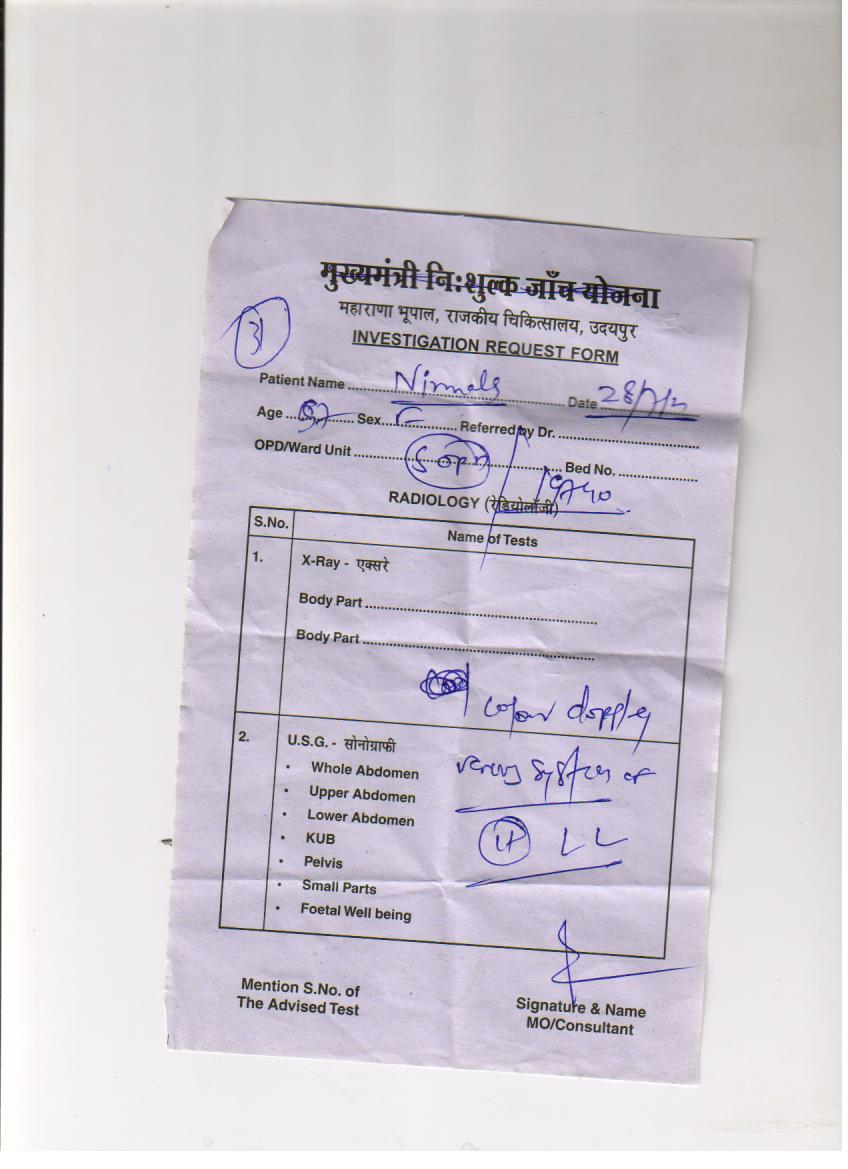 मुख्यमंत्री नि:शुल्क जाँच योजना
महाराणा भूपाल, राजकीय चिकित्सालय, उदयपुर
INVESTIGATION REQUEST FORM
Patient Name Date 28/7/
Age Sex F Referred by Dr.
OPD/Ward Unit Bed No.
RADIOLOGY (रेडियोलॉजी)
S.No. Name of Tests
1. X-Ray - एक्सरे
Body Part
Body Part
colour doppler
2. U.S.G. - सोनोग्राफी
• Whole Abdomen venous system of
• Upper Abdomen
• Lower Abdomen
• KUB Lt LL
• Pelvis
• Small Parts
• Foetal Well being
Mention S.No. of
The Advised Test
Signature & Name
MO/Consultant